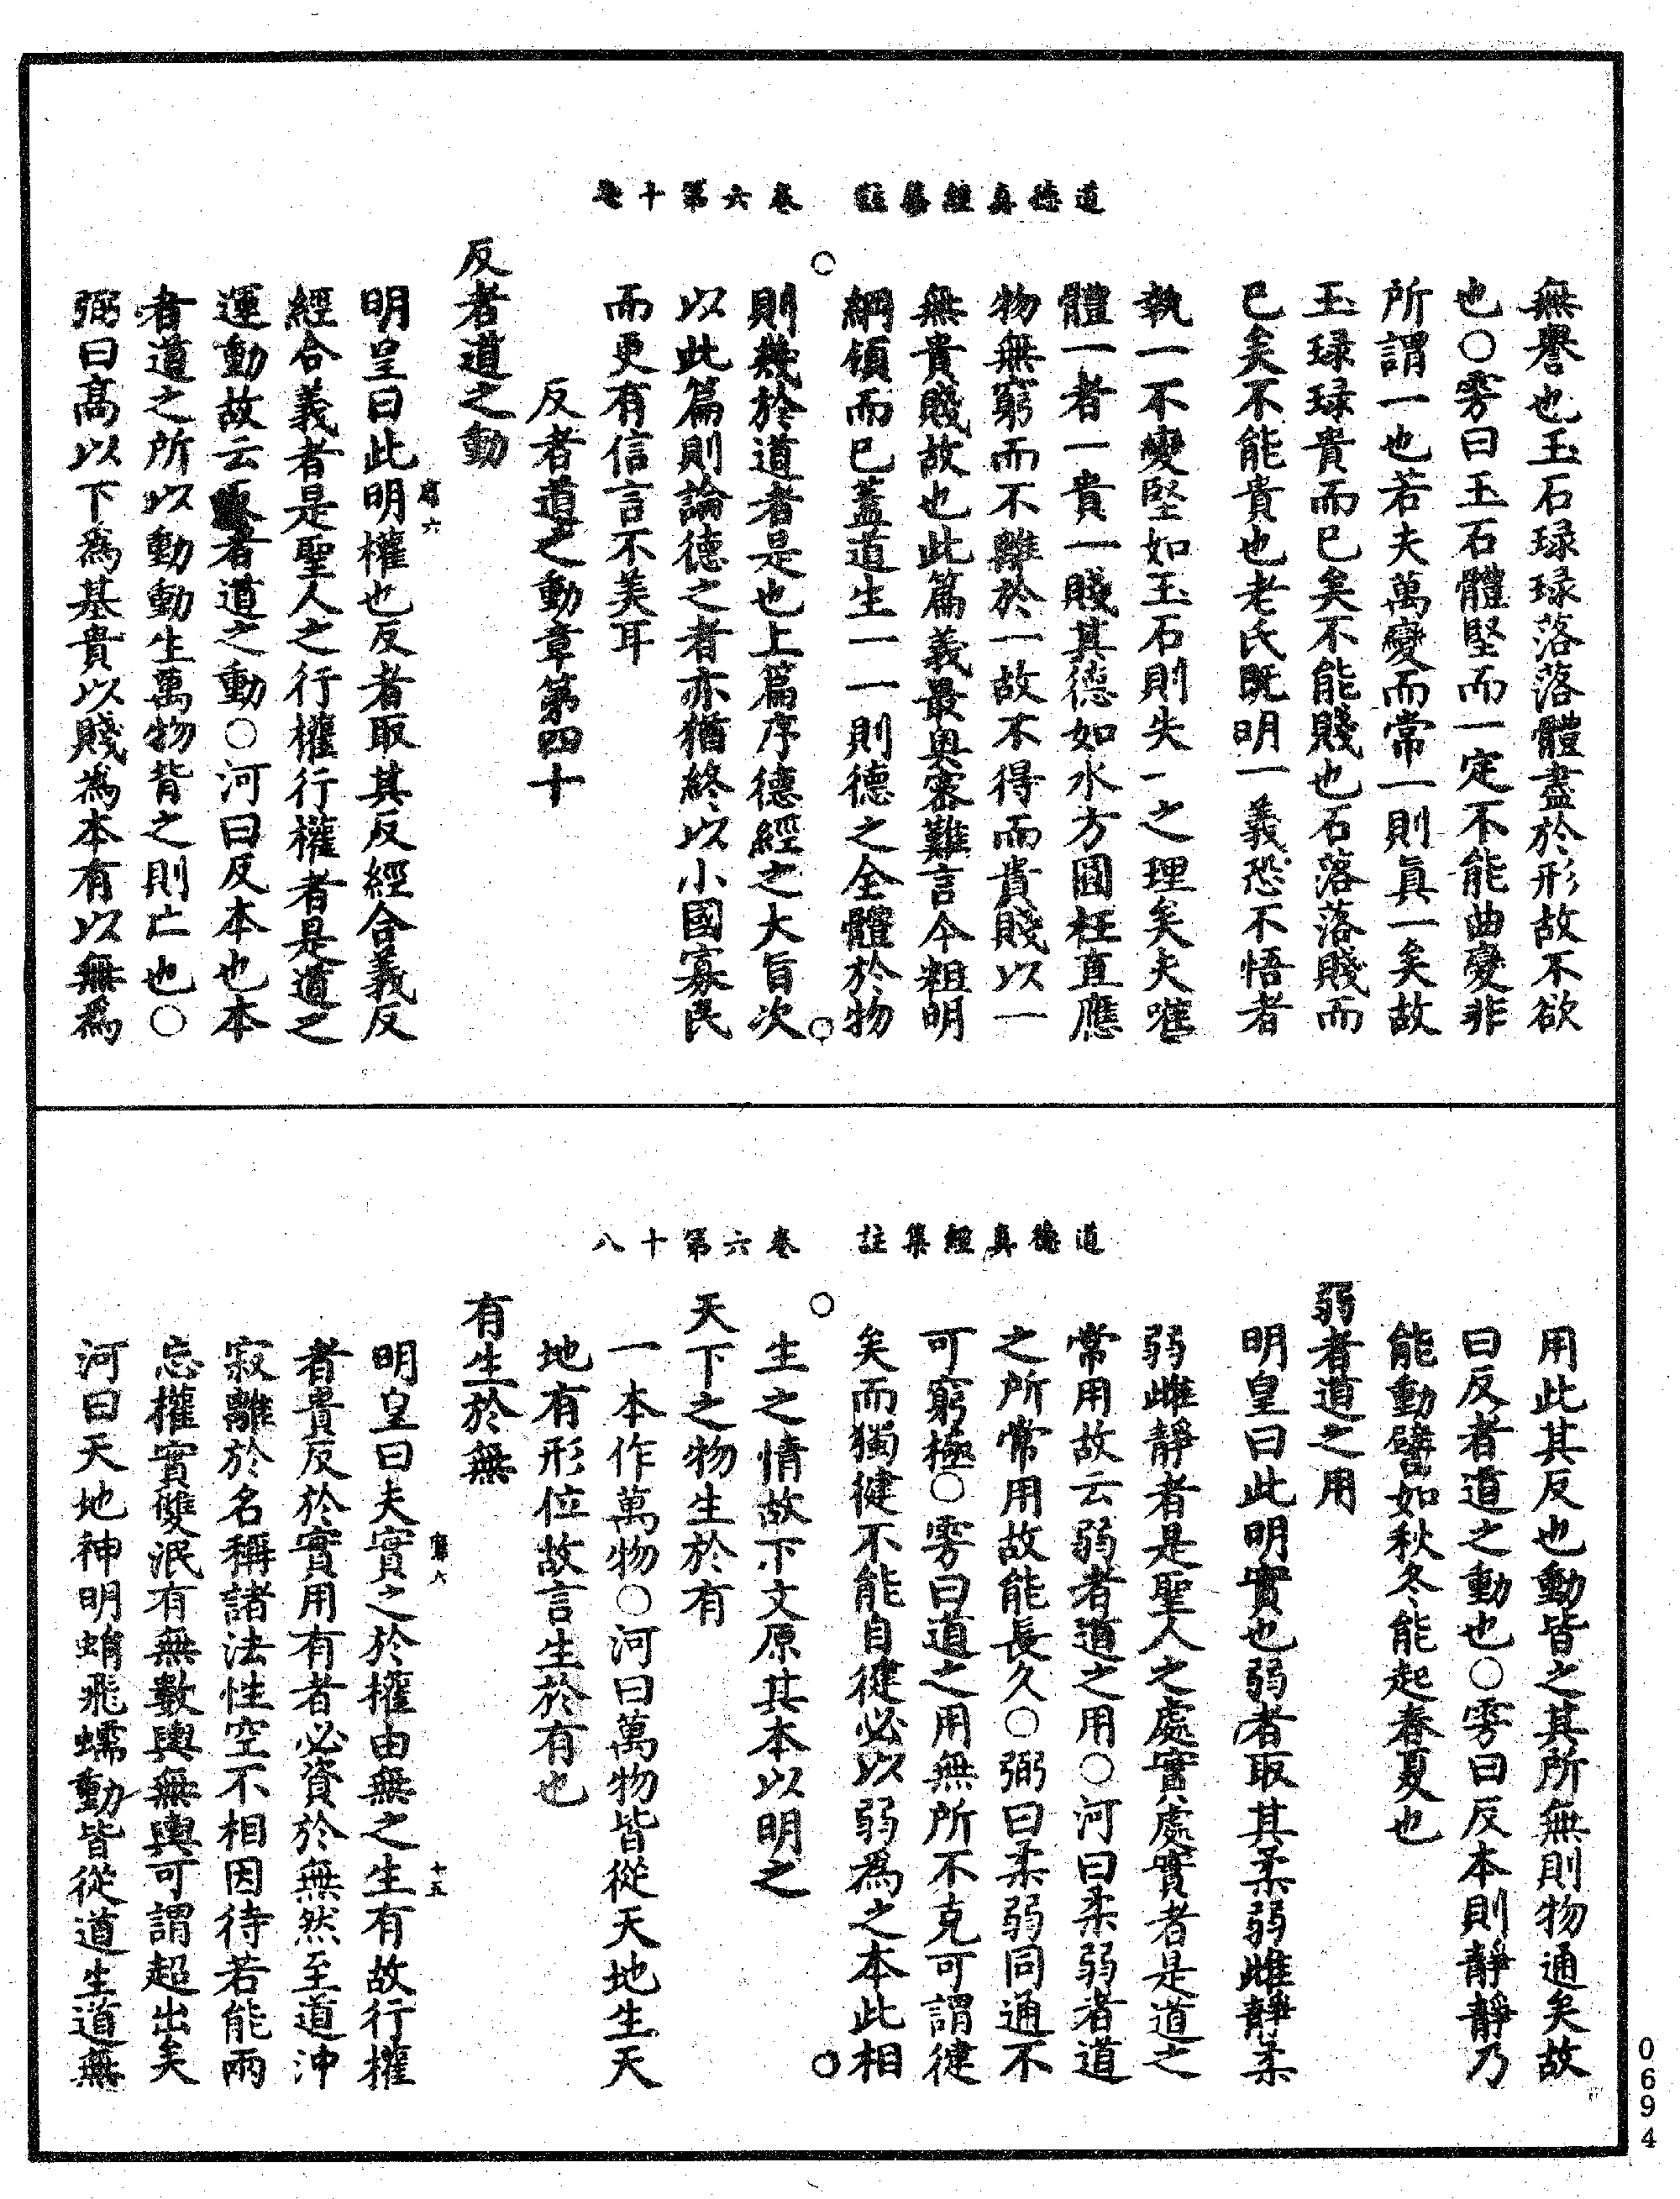 道德真經集註　卷六第十七
無譽也玉石琭琭落落體盡於形故不欲
也○雱曰玉石體堅而一定不能曲變非
所謂一也若夫萬變而常一則真一矣故
玉琭琭貴而已矣不能賤也石落落賤而
已矣不能貴也老氏既明一義恐不悟者
執一不變堅如玉石則失一之理矣夫唯
體一者一貴一賤其德如水方圓枉直應
物無窮而不離於一故不得而貴賤以一
無貴賤故也此篇義最奧密難言今粗明
綱領而已蓋道生一一則德之全體於物
○　○
則幾於道者是也上篇序德經之大旨次
以此篇則論德之者亦猶終以小國寡民
而更有信言不美耳
反者道之動章第四十
反者道之動
六
明皇曰此明權也反者取其反經合義反
經合義者是聖人之行權行權者是道之
運動故云反者道之動○河曰反本也本
者道之所以動動生萬物背之則亡也○
弼曰高以下為基貴以賤為本有以無為
道德真經集註　卷六第十八
用此其反也動皆之其所無則物通矣故
曰反者道之動也○雱曰反本則靜靜乃
能動譬如秋冬能起春夏也
弱者道之用
明皇曰此明實也弱者取其柔弱雌靜柔
弱雌靜者是聖人之處實處實者是道之
常用故云弱者道之用○河曰柔弱者道
之所常用故能長久○弼曰柔弱同通不
可窮極○雱曰道之用無所不克可謂健
矣而獨健不能自健必以弱為之本此相
○　○
生之情故下文原其本以明之
天下之物生於有
一本作萬物○河曰萬物皆從天地生天
地有形位故言生於有也
有生於無
六　十五
明皇曰夫實之於權由無之生有故行權
者貴反於實用有者必資於無然至道沖
寂離於名稱諸法性空不相因待若能兩
忘權實雙泯有無數輿無輿可謂超出矣
河曰天地神明蜎飛蠕動皆從道生道無
0694